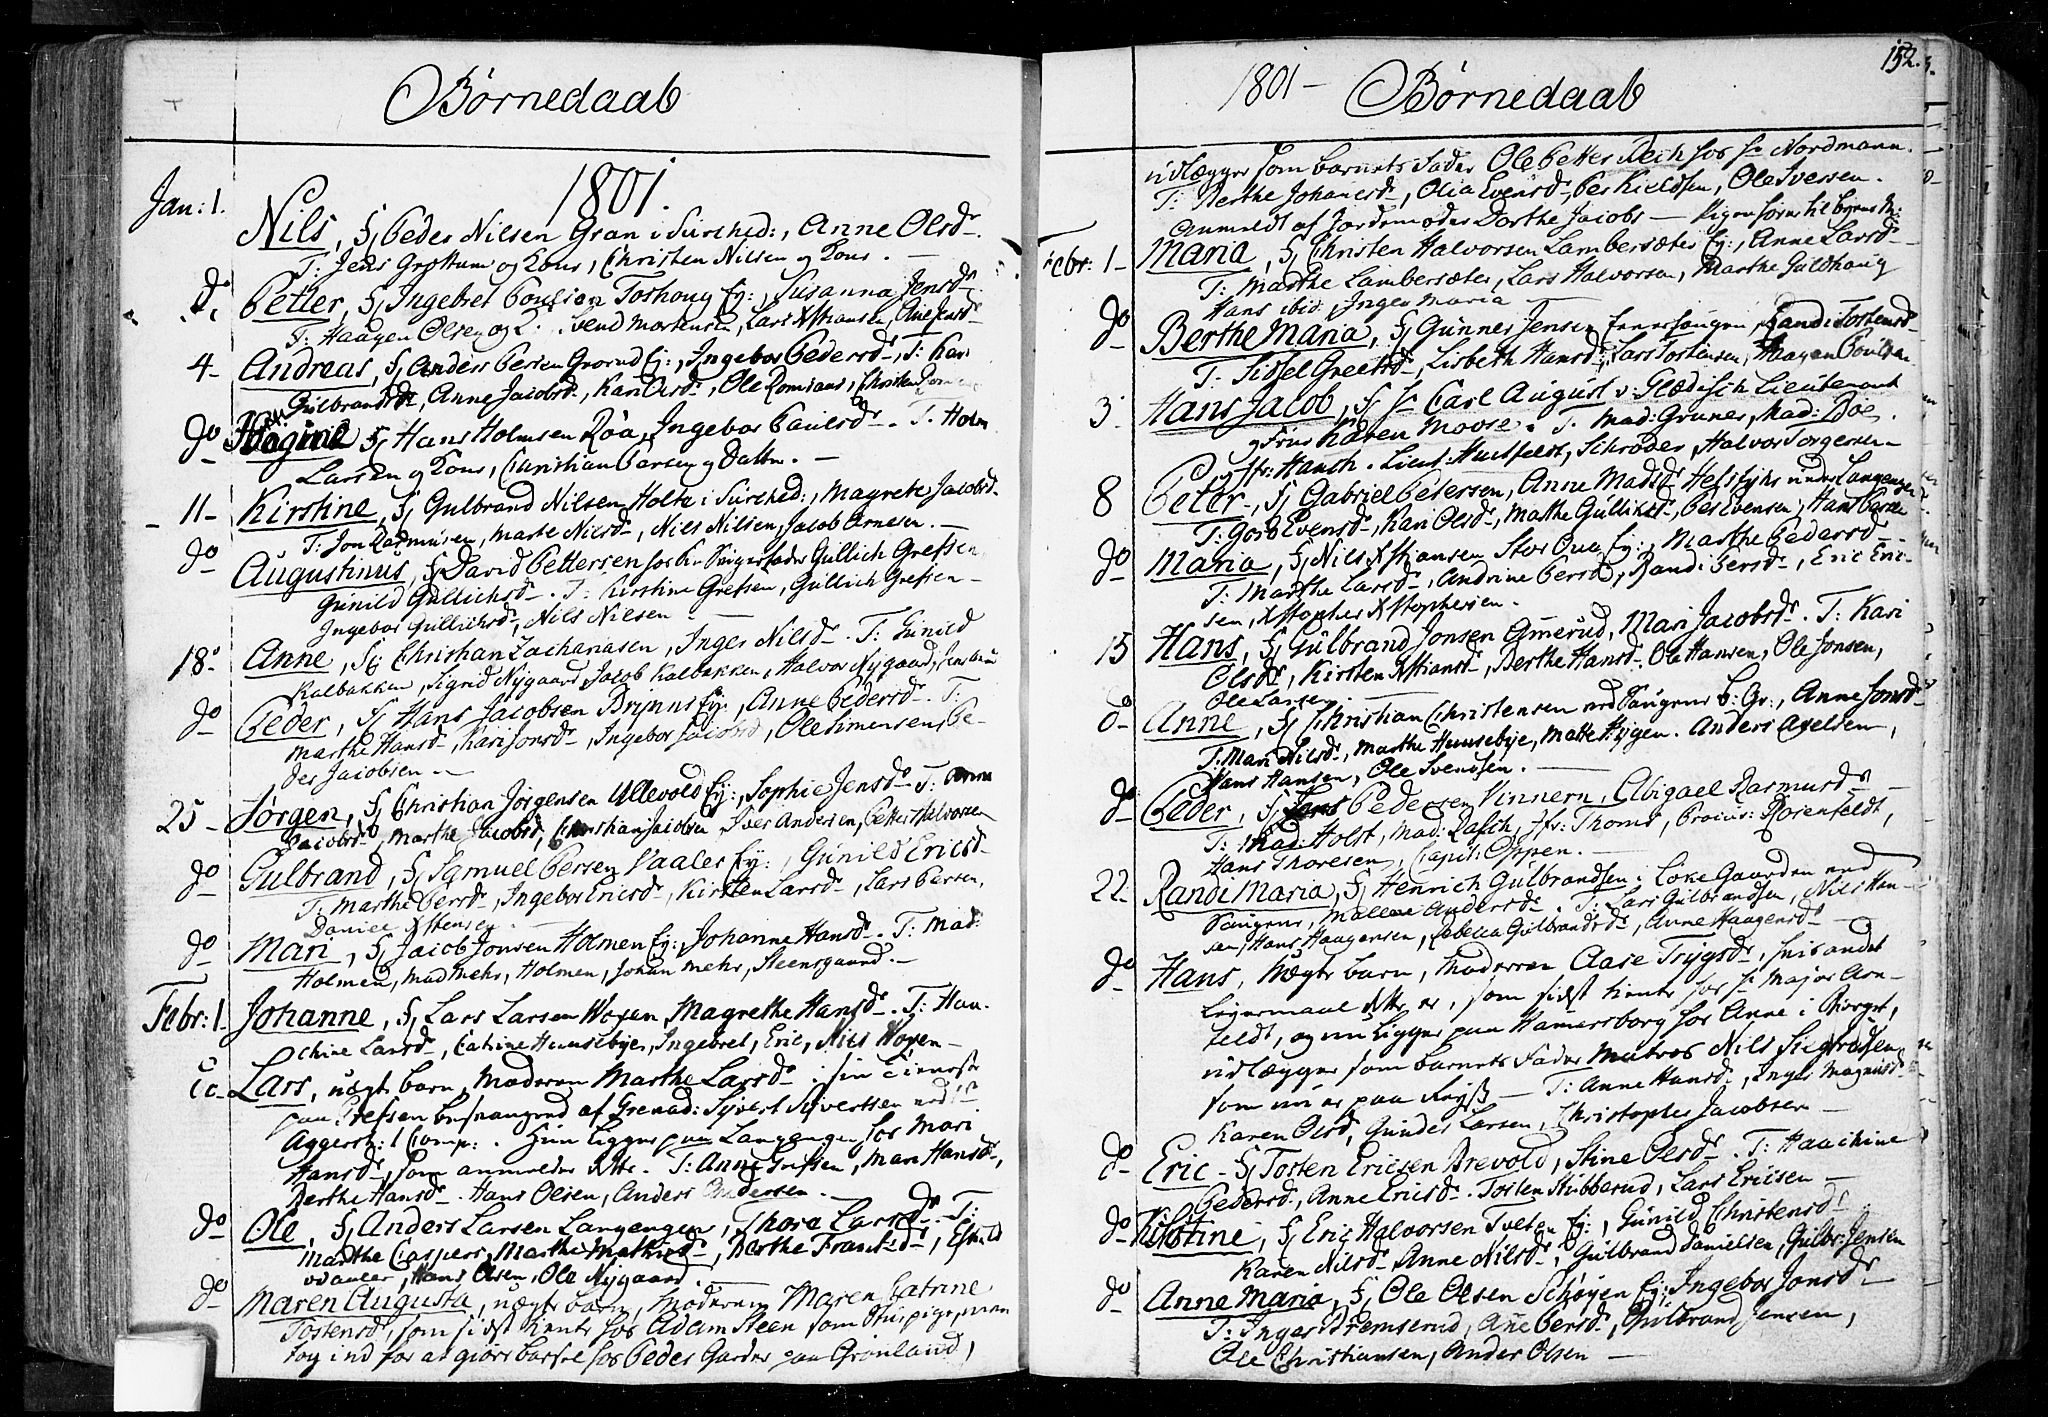 Børnedaab
1801.
Jan: 1. Nils, F, Peder Nilsen Gran i Sørched:, Anne Olsdr.
T: Jens Grøttum og Kone, Christen Nilsen og Kone. —
do Petter, F, Ingebret Poulsen Toshoug Ej:, Susanna Jensdr.
T: Haagen Olsen og K. Svend Mortensen, Lars Xstiansen, Ane Jensdr
4- Andreas, F, Anders Persen Grorud Ej:, Ingebor Pedersdr, T: Kari
Gulbrandsdr, Anne Jacobsdr, Kari Olsdr, Ole Romsaas, Christen
do F, Hans Holmsen Røa, Ingebor Paulsdr. T: Holm
Larsen og Kone, Christian Larsen og Datter. —
- 11 - Kirstine, F, Gulbrand Nilsen Holte i Sørched:, Magrete Jacobsd.
T: Jon Rasmusen, Marte Nilsdr, Nils Nilsen, Jacob Arnesen. —
do Augustinus, F, David Pettersen hos sin Svigerfader Gullich Grefsen,
Gunild Gullichsdr. T: Kirstine Grefsen, Gullich Grefsen —
Ingebor Gullichsdr, Nils Nilsen —
18. Anne, F: Christian Zachariasen, Inger Nilsdr. T: Gunild
Kalbakken, Sigrid Nygaard, Jacob Kalbakken, Halvor Nygaard,
do Peder, F, Hans Jacobsen Bryns Ej:, Anne Pedersdr. T:
Marthe Hansdr, Kari Jonsdr, Ingebor Jacobsd, Ole Simensen, Pe-
der Jacobsen. —
25 - Jørgen, F, Christian Jørgensen Ullevold Ej:, Sophie Jensdr T: Anne
Jacobsdr, Marthe Jacobsd, Christian Jacobsen, Iver Andersen, Petter Halvorsen
do Gulbrand, F, Samuel Persen Vaaler Ej:, Gunild Ericsd
T: Marthe Persdr, Ingebor Ericsdr, Kirsten Larsdr, Lars Persen,
Daniel Xstensen. —
do Mari, F, Jacob Jonsen Holmen Ej:, Johanne Hansdr. T: Mad:
Holmen, Mad Mehr, Holmen, Johan Mehr, Steensgaard. —
Febr: 1. Johanne, F, Lars Larsen Woxen, Magrethe Hansdr. T: Han-
chine Larsdr, Catrine Huusebye, Ingebret, Eric, Nils Woxen —
do - Lars, uægt barn, Moderen Marthe Larsdr i sin Tieneste
paa Grefsen besvangred af Grenad: Syvert Syvertsen ved
Aggersh: 1 Comp:. Hun ligger paa Langengen hos Mari
Hansdr, som anmelder dette. T: Anne Grefsen, Mari Hansdr,
Berthe Hansdr. Hans Olsen, Anders Andersen. —
do Ole, F, Anders Larsen Langengen, Thore Larsdr. T:
Marthe Caspers, Marthe Mathisdr, Berthe Frantzdr,
Hans Olsen, Ole Nygaard. —
do Maren Augusta, uægte barn, Moderen Maren Catrine
Tostensdr, som sidst tiente hos Adam Steen som Stuepige, man
tog ind for at giøre barsel hos Peder Garder paa Grønland,
152.
1801 - Børnedaab
udlægger som barnets Fader Ole Petter Reich hos Hr Nordmann.
T: Berthe Johansdr, Olia Evensdr, Per Kieldsen, Ole Iversen.
Anmeldt af Jordemoder Dorthe Jacobs —
Febr: 1 - Maria, F, Christen Halvorsen Lambersæter Ej:, Anne Larsdr —
T: Marthe Lambersæter, Lars Halvorsen, Marthe Guldhaug
Hans ibid, Inger Maria —
do Berthe Maria, F, Gunner Jensen, Randi Tostensdr
T: Sidsel Greersdr, Lisbeth Hansdr, Lars Tostensen, Haagen Poulsen
3. Hans Jacob, F, Hr Carl August v: Glædisch Lieutenant
og Frue Karen Moose. T: Mad: Gruner, Mad: Boe,
Jfr: Hansch. Lieut: Huitfeldt, Schrøder, Halvor Torgersen —
8 Peter, F, Gabriel Petersen, Anne Madsdr Helsfyhr under Langengen
T: Goro Evensdr, Kari Olsdr, Mathe Gullichsd, Per Evensen, Hans Persen
do Maria, F, Nils Xstiansen Stor Oua Ej:, Marthe Pedersdr —
T: Marthe Larsdr, Andrine Persdr, Randi Persdr, Eric Eric-
sen, Xstopher Xstophersen.
15 Hans, F, Gulbrand Jonsen Amerud, Mari Jacobsdr. T: Kari
Olsdr, Kirsten Xstiansdr, Berthe Hansdr, Ole Hansen, Ole Jonsen,
Ole Larsen —
do Anne, F, Christian Christensen ved Saugene b: Gr:, Anne Jonsdr
T: Mari Nilsdr, Marthe Huusebye, Mathe Hygen. Anders Axelsen,
Hans Hansen, Ole Svendsen. —
do Peder, F, Lars Pedersen Vinnern, Abigael Rasmusdr —
T: Mad: Holst, Mad: Rasch, Jfr: Thoms, Procur: Rosenfeldt,
Hans Thoresen, Capit: Oppen. —
22. Randi Maria, F, Henrich Gulbrandsen i Løke Gaarden ved
Saugene, Malene Andersdr. T: Lars Gulbrandsen, Nils Han-
sen, Hans Haagensen, Rebecca Gulbrandsdr, Anne Haagensdr —
do Hans, uægte barn, Moderen Aase Trygsdr, hvis andet
Leiermaal dette er, som sidst tiente hos Hr Major Arn-
feldt, og nu ligger paa Hamersborg hos Anne i Biørget,
udlægger som barnets Fader Matros Nils Siegvardsen,
som nu er paa Reise — T: Anne Hansdr, Inger Magnusdr
Karen Olsd, Gunder Larsen, Christopher Jacobsen —
do Eric - F, Tosten Ericsen Brevold, Stine Olsdr. T: Haachine
Pedersdr, Anne Ericsdr. Tosten Stubberud, Lars Ericsen —
do Kirstine, F, Eric Halvorsen Tveten Ej:, Gunild Christensdr
Karen Nilsdr, Anne Nilsdr, Gulbrand Danielsen, Gulbr: Jensen
do Anne Maria, F, Ole Olsen Schøyen Ej:, Ingebor Jonsdr —
T: Inger Bremserud, Ane Persdr, Gulbrand Jensen,
Ole Christiansen, Ander Olsen —